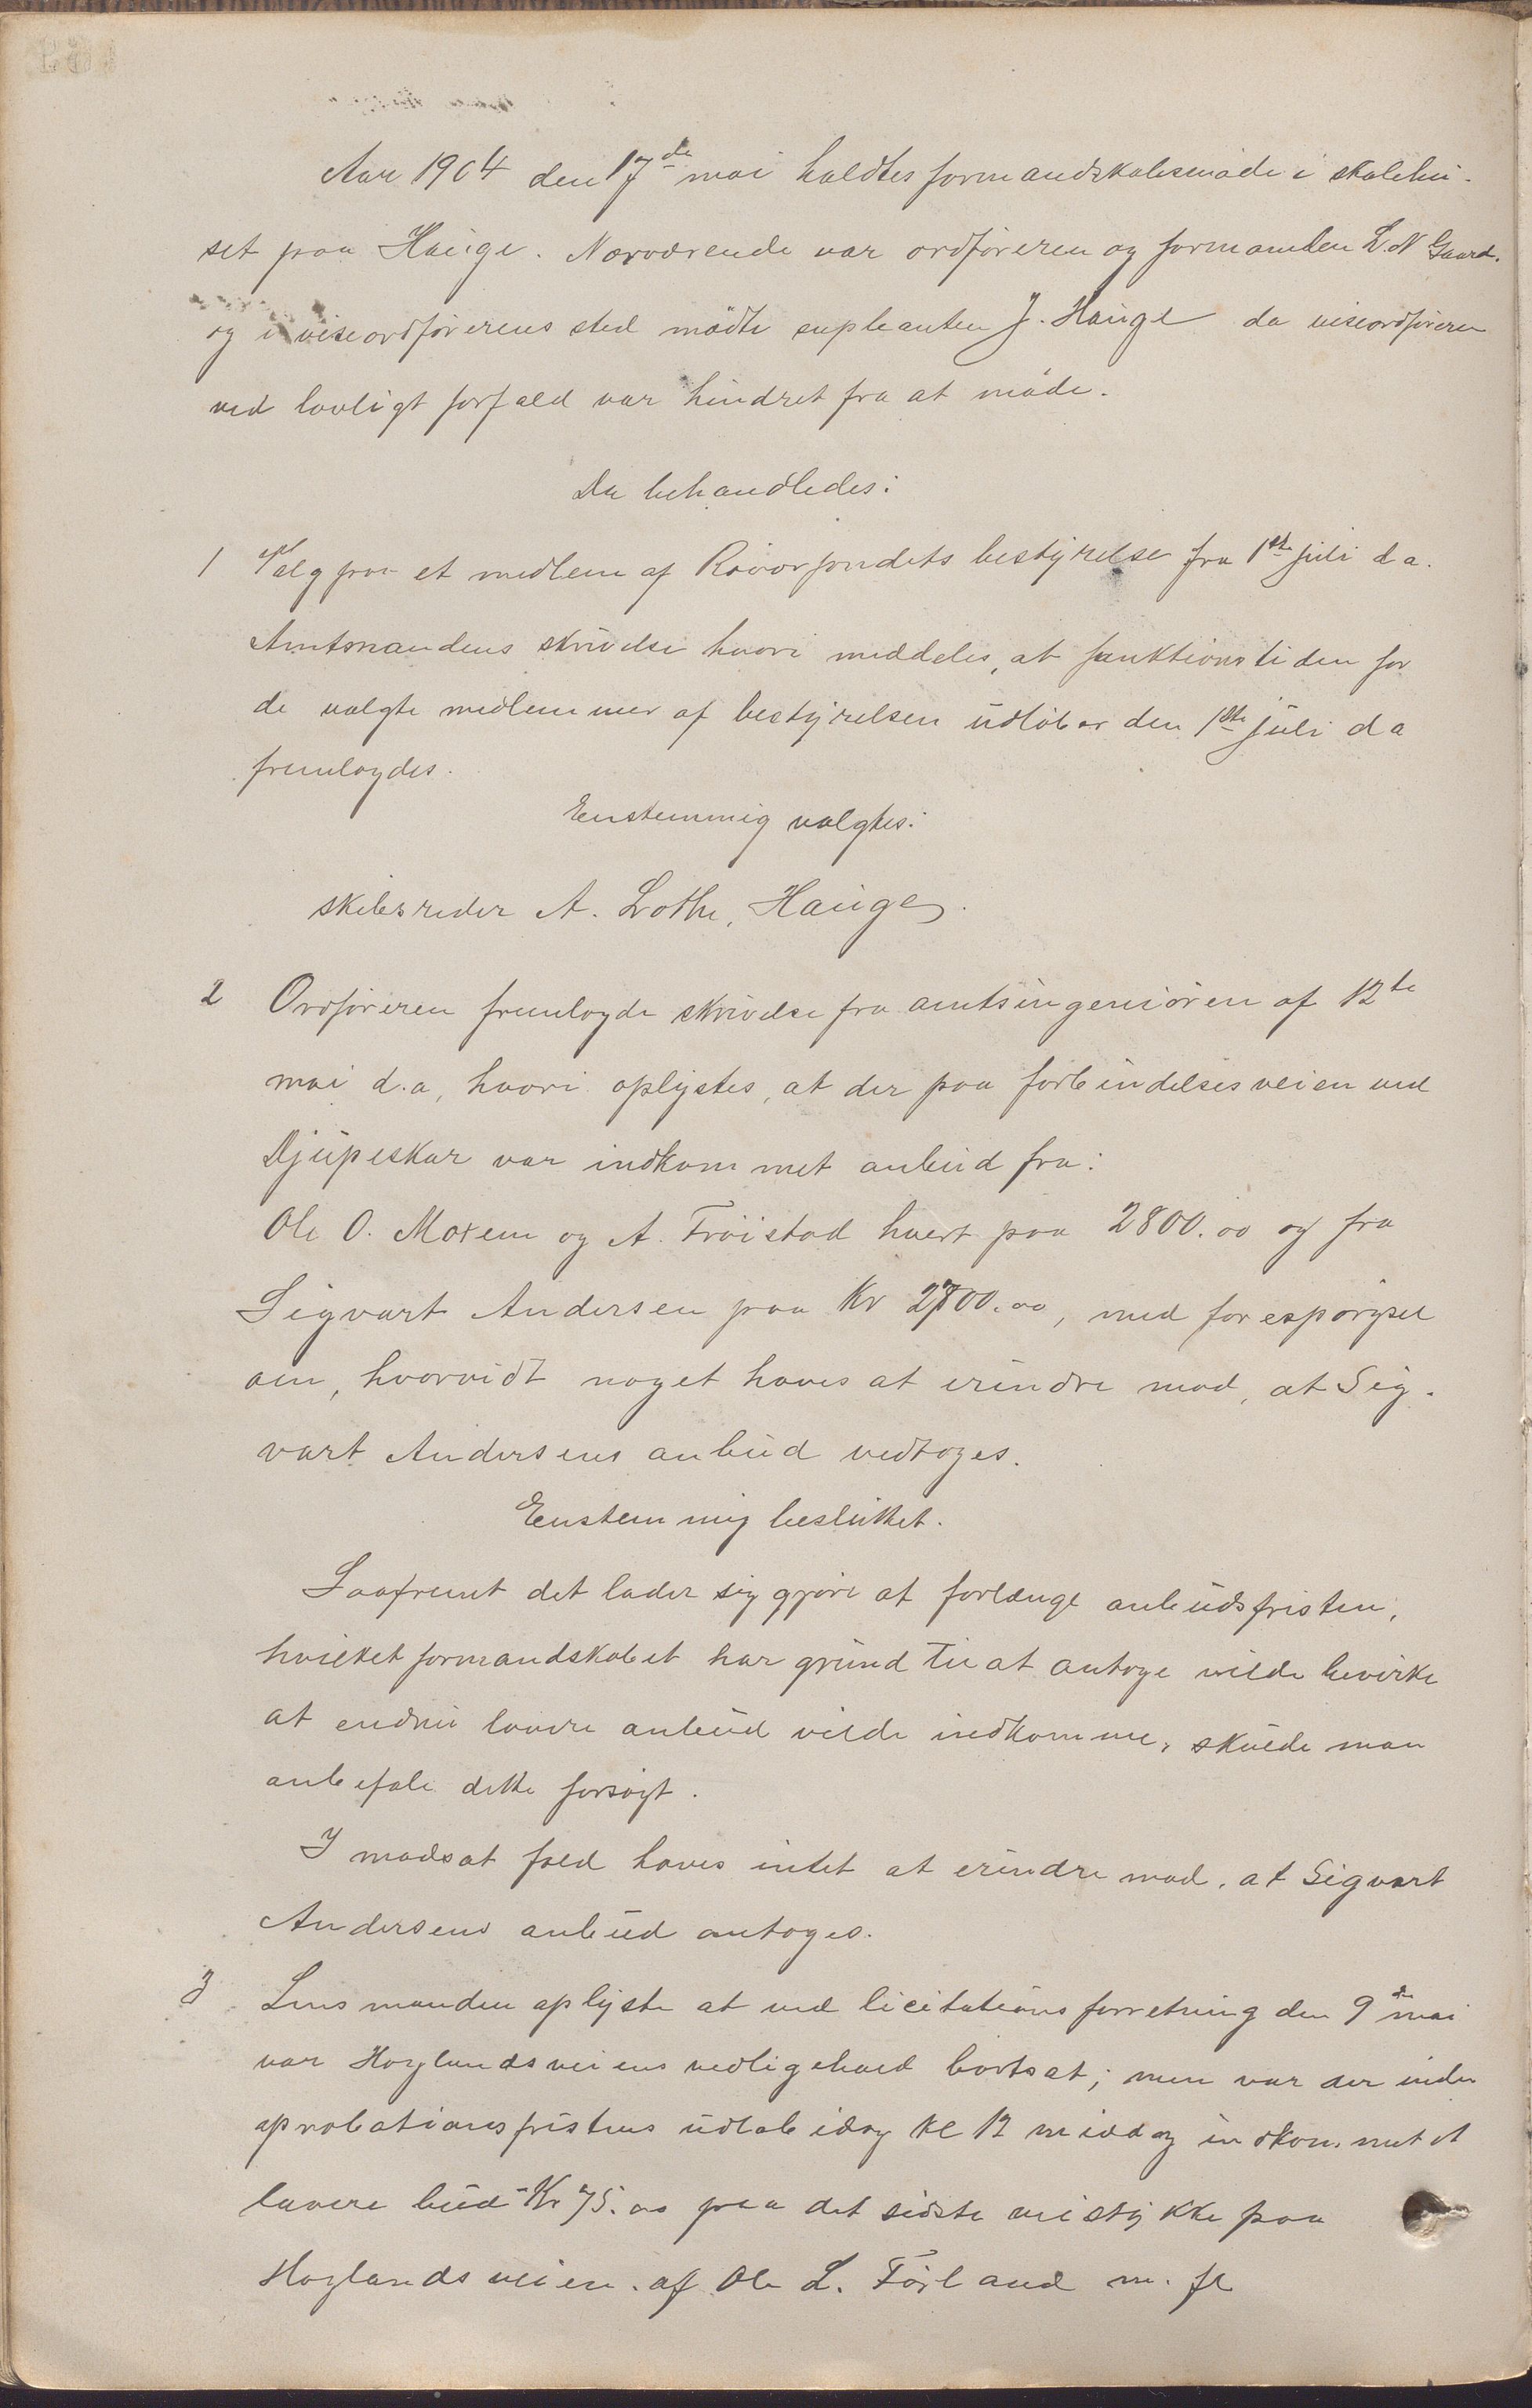 Aar 1904 den 17de mai holdtes formandskabsmøde i skolehu-
set paa Hauge. Nærværende var ordføreren og formanden L. N Gaard.
og i viseordførerens sted mødte supleanten J. Hauge da viseordføreren
ved lovligt forfald var hindret fra at møde.
Da behandledes:
1 Valg paa et medlem af Røværfondets bestyrelse fra 1ste juli d a.
Amtmandens skrivelse hvori meddeles, at funktionstiden for
de valgte medlemmer af bestyrelsen udløber den 1ste juli d a
fremlagdes.
Enstemmig valgtes:
skibsreder A. Lothe, Hauge.
2 Ordføreren fremlagde skrivelse fra amtsingeniøren af 12te
mai d.a, hvori oplystes, at der paa forbindelsesveien ved
Djupeskar var indkommet anbud fra:
Ole O. Mæren og A. Frøistad hvert paa 2800.00 og fra
Sigvart Andersen paa Kr 2700.00, med forespørgsel
om, hvorvidt noget haves at erindre mod, at Sig-
vart Andersens anbud vedtoges.
Enstemmig besluttet.
Saafremt det lader sig gjøre at forlænge anbudsfristen,
hvilket formandskabet har grund til at antage vilde bevirke
at endnu lavere anbud vilde indkomme, skulde man
anbefale dette forsøgt.
I modsat fald haves intet at erindre mod, at Sigvart
Andersens anbud antoges.
3 Lensmanden oplyste at ved licitationsforretning den 9de mai
var Høylandsveiens vedligehold bortsat; men var der inden
aprobationsfristens udløb idag kl 12 middag indkommet et
lavere bud - Kr 75.00 paa det sidste veistykke paa
Høylandsveien. af Ole L. Førland m. fl